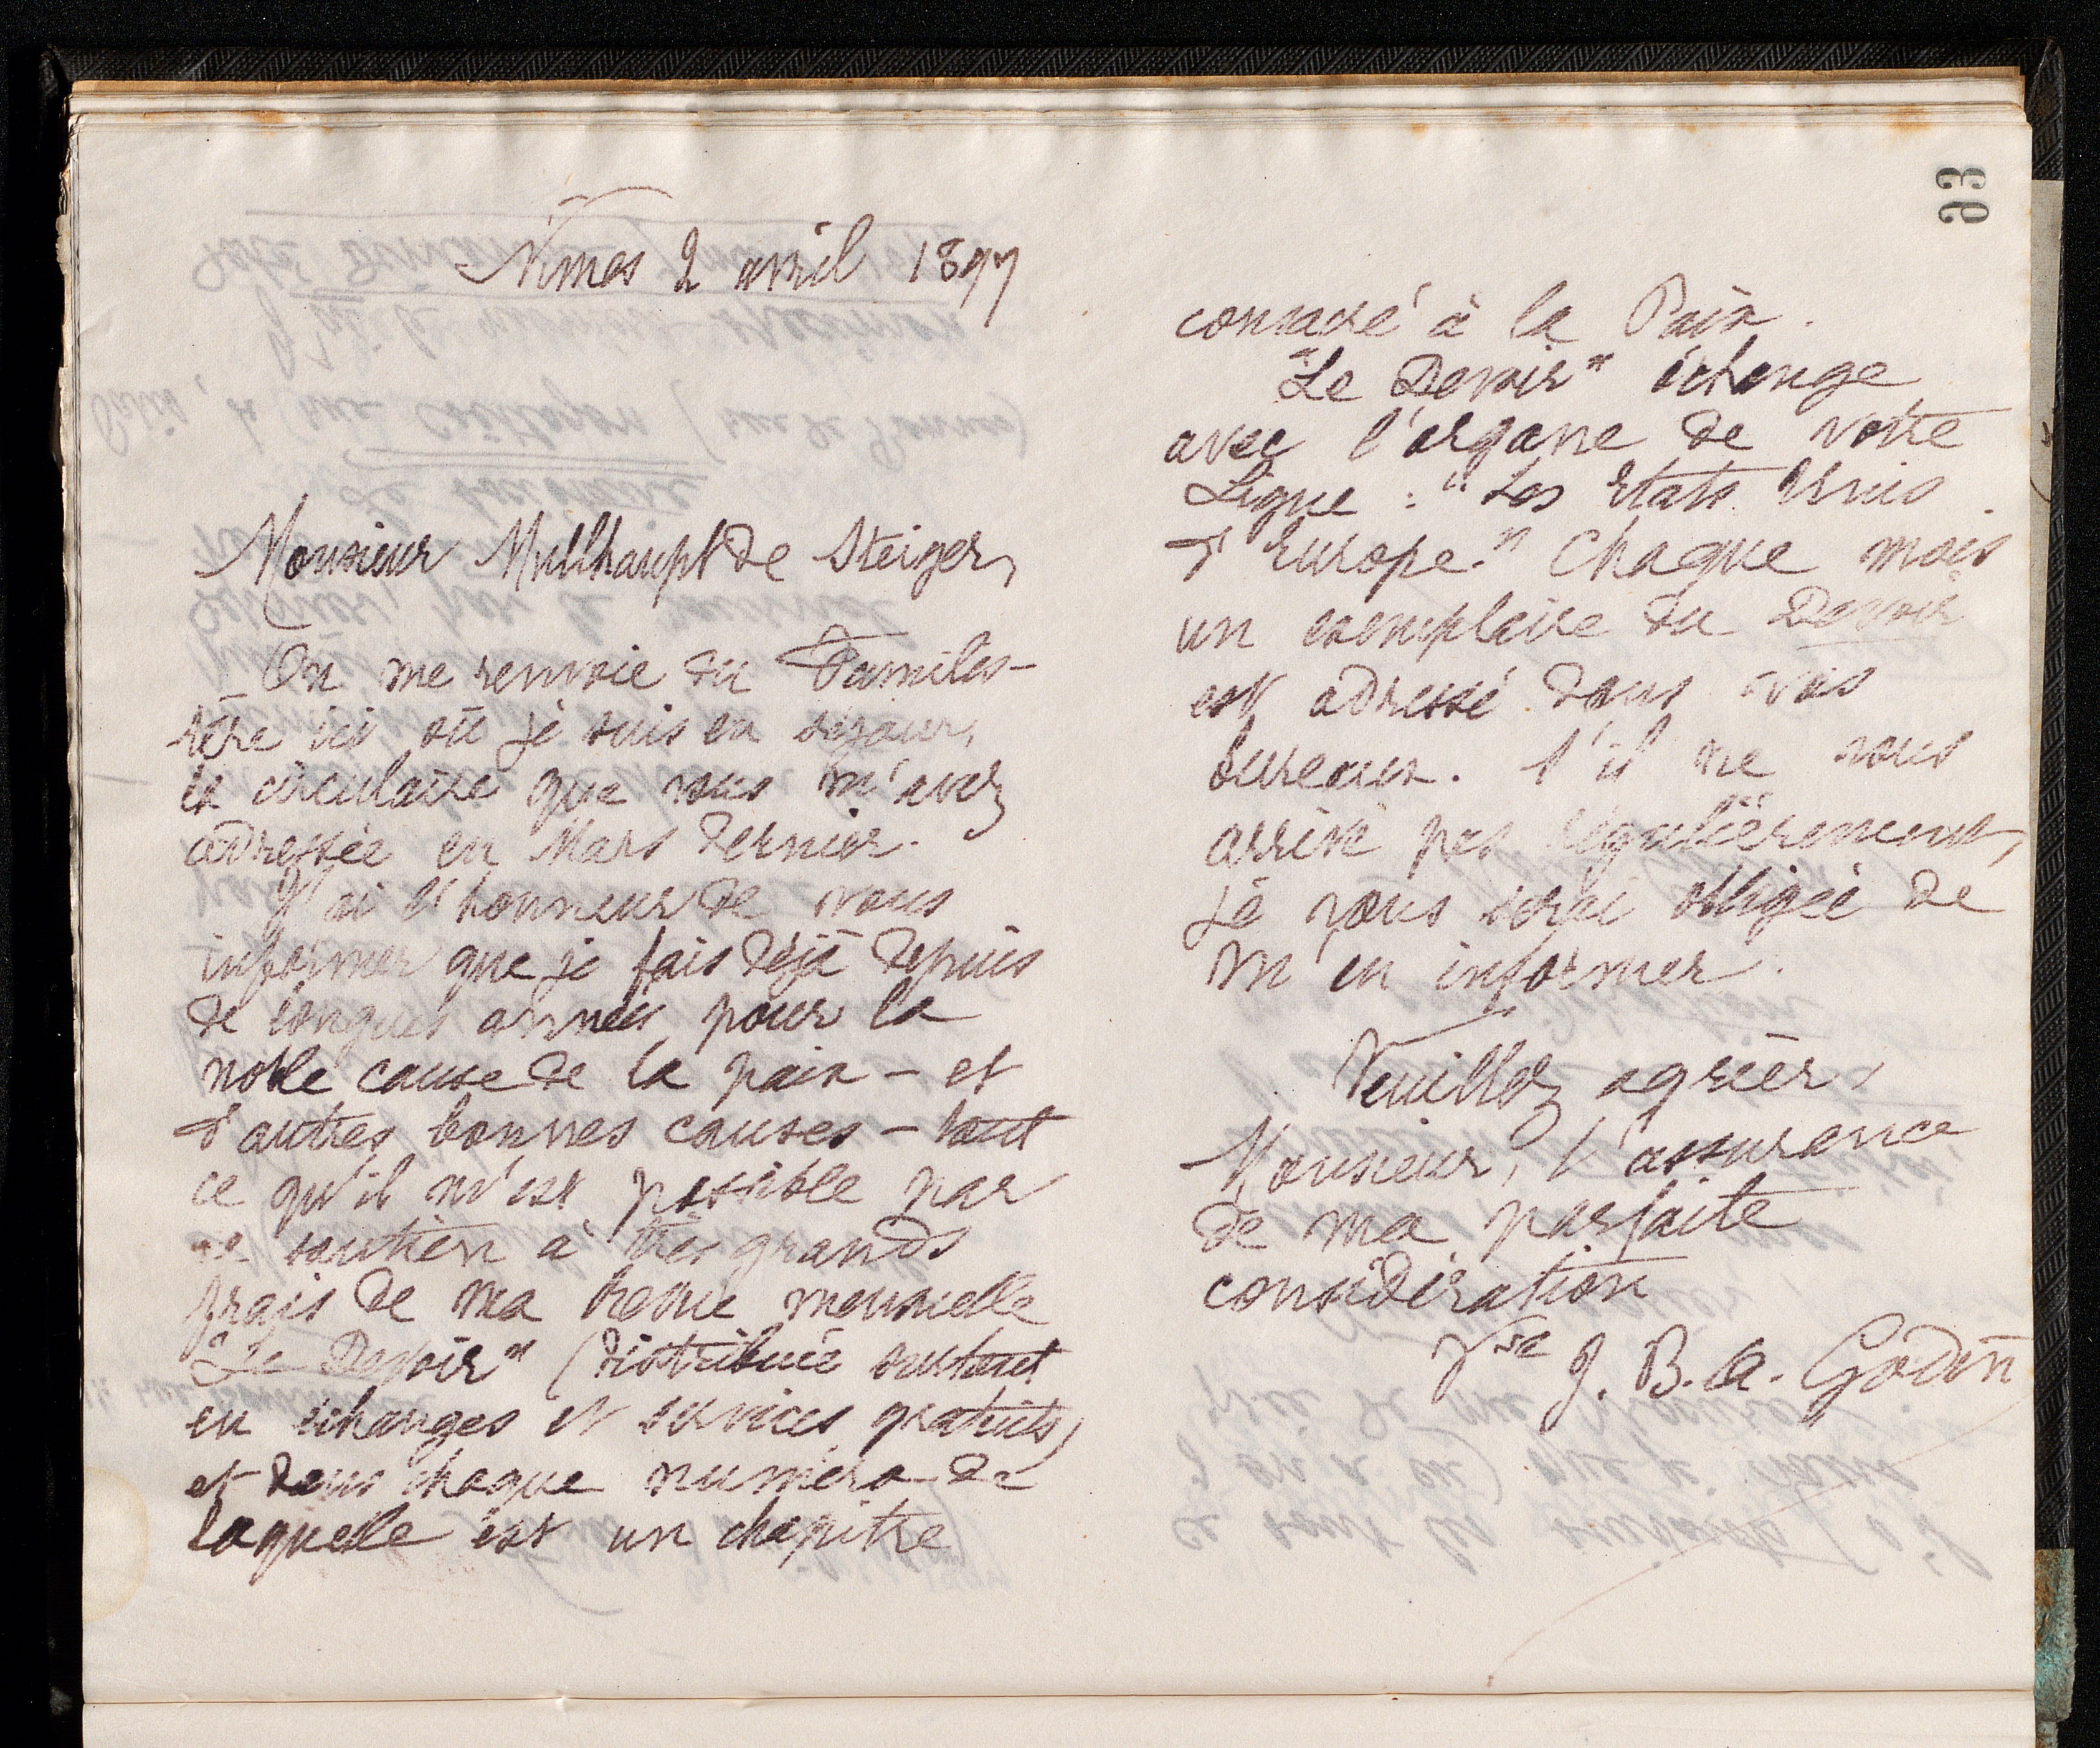 Nimes 2 avril 1897
Monsieur Mullhaupt de Steiger,
On me renvoie du Familis-
tère ici où je suis en séjour,
la circulaire que vous m'avez
adressée en Mars dernier.
J'ai l'honneur de vous
informer que je fais déjà depuis
de longues années pour la
noble cause de la paix - et
d'autres bonnes causes - tout
ce qu'il m'est possible par
le soutien à très grands
frais de ma revue mensuelle
"Le Devoir" (distribuée surtout
en échanges et services gratuits)
et dans chaque numéro de
laquelle est un chapitre
93
consacré à la Paix.
"Le Devoir" échange
avec l'organe de votre
Ligue : "Les Etats Unis
d'Europe." Chaque mois
un exemplaire du Devoir
est adressé dans vos
bureaux. S'il ne vous
arrive pas régulièrement,
je vous serai obligée de
m'en informer.
Veuillez agréer,
Monsieur, l'assurance
de ma parfaite
considération
Vve J. B. A. Godin